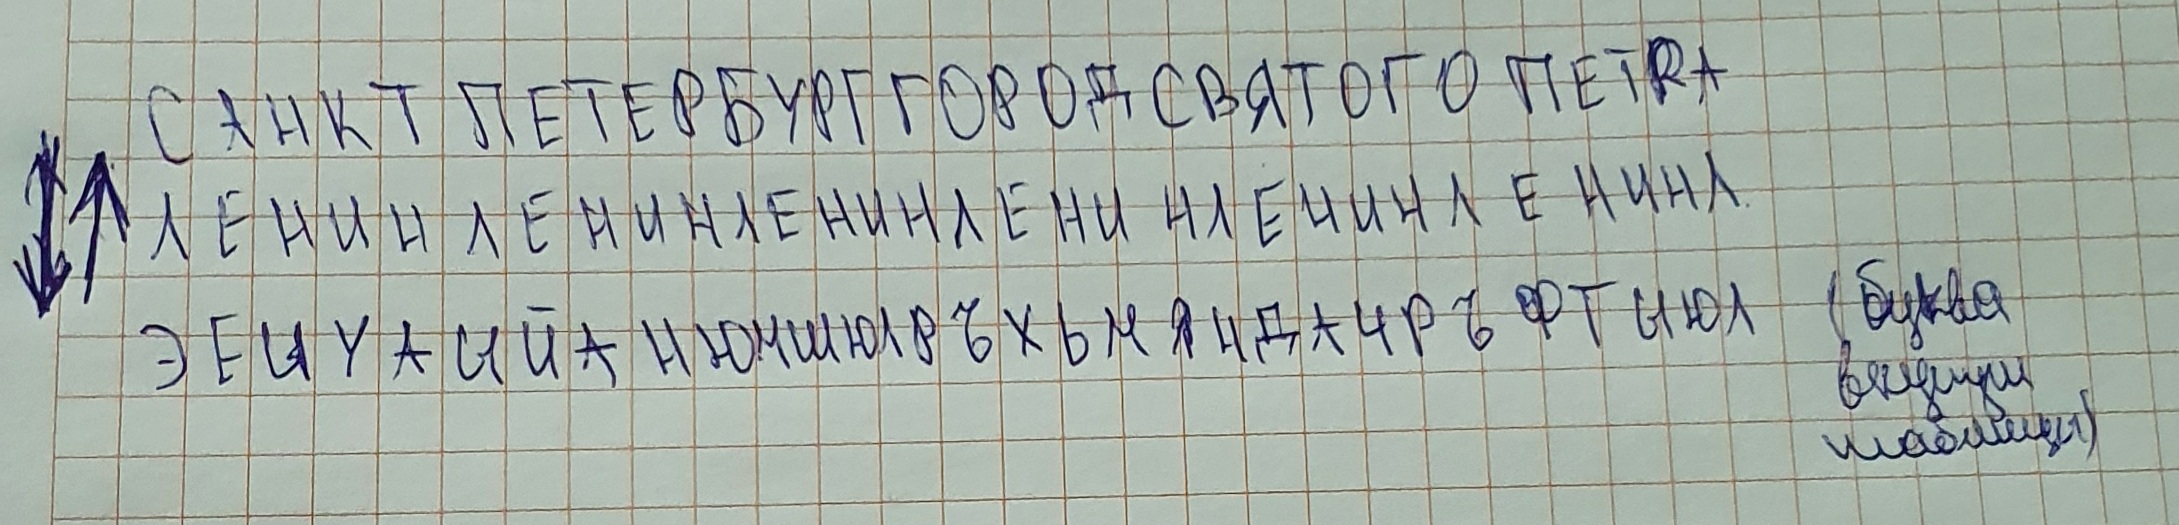 САНКТ ПЕТЕРБУРГ ГОРОД СВЯТОГО ПЕТRА
ЛЕНИНЛЕНИНЛЕНИНЛЕНИНЛЕНИНЛЕНИНЛ
ЭЕЦУАЦЙАНЮЧШЮЛРЪХЬМЯЧДАЧРЪФТЦЮЛ (буква
внутри
таблицы)